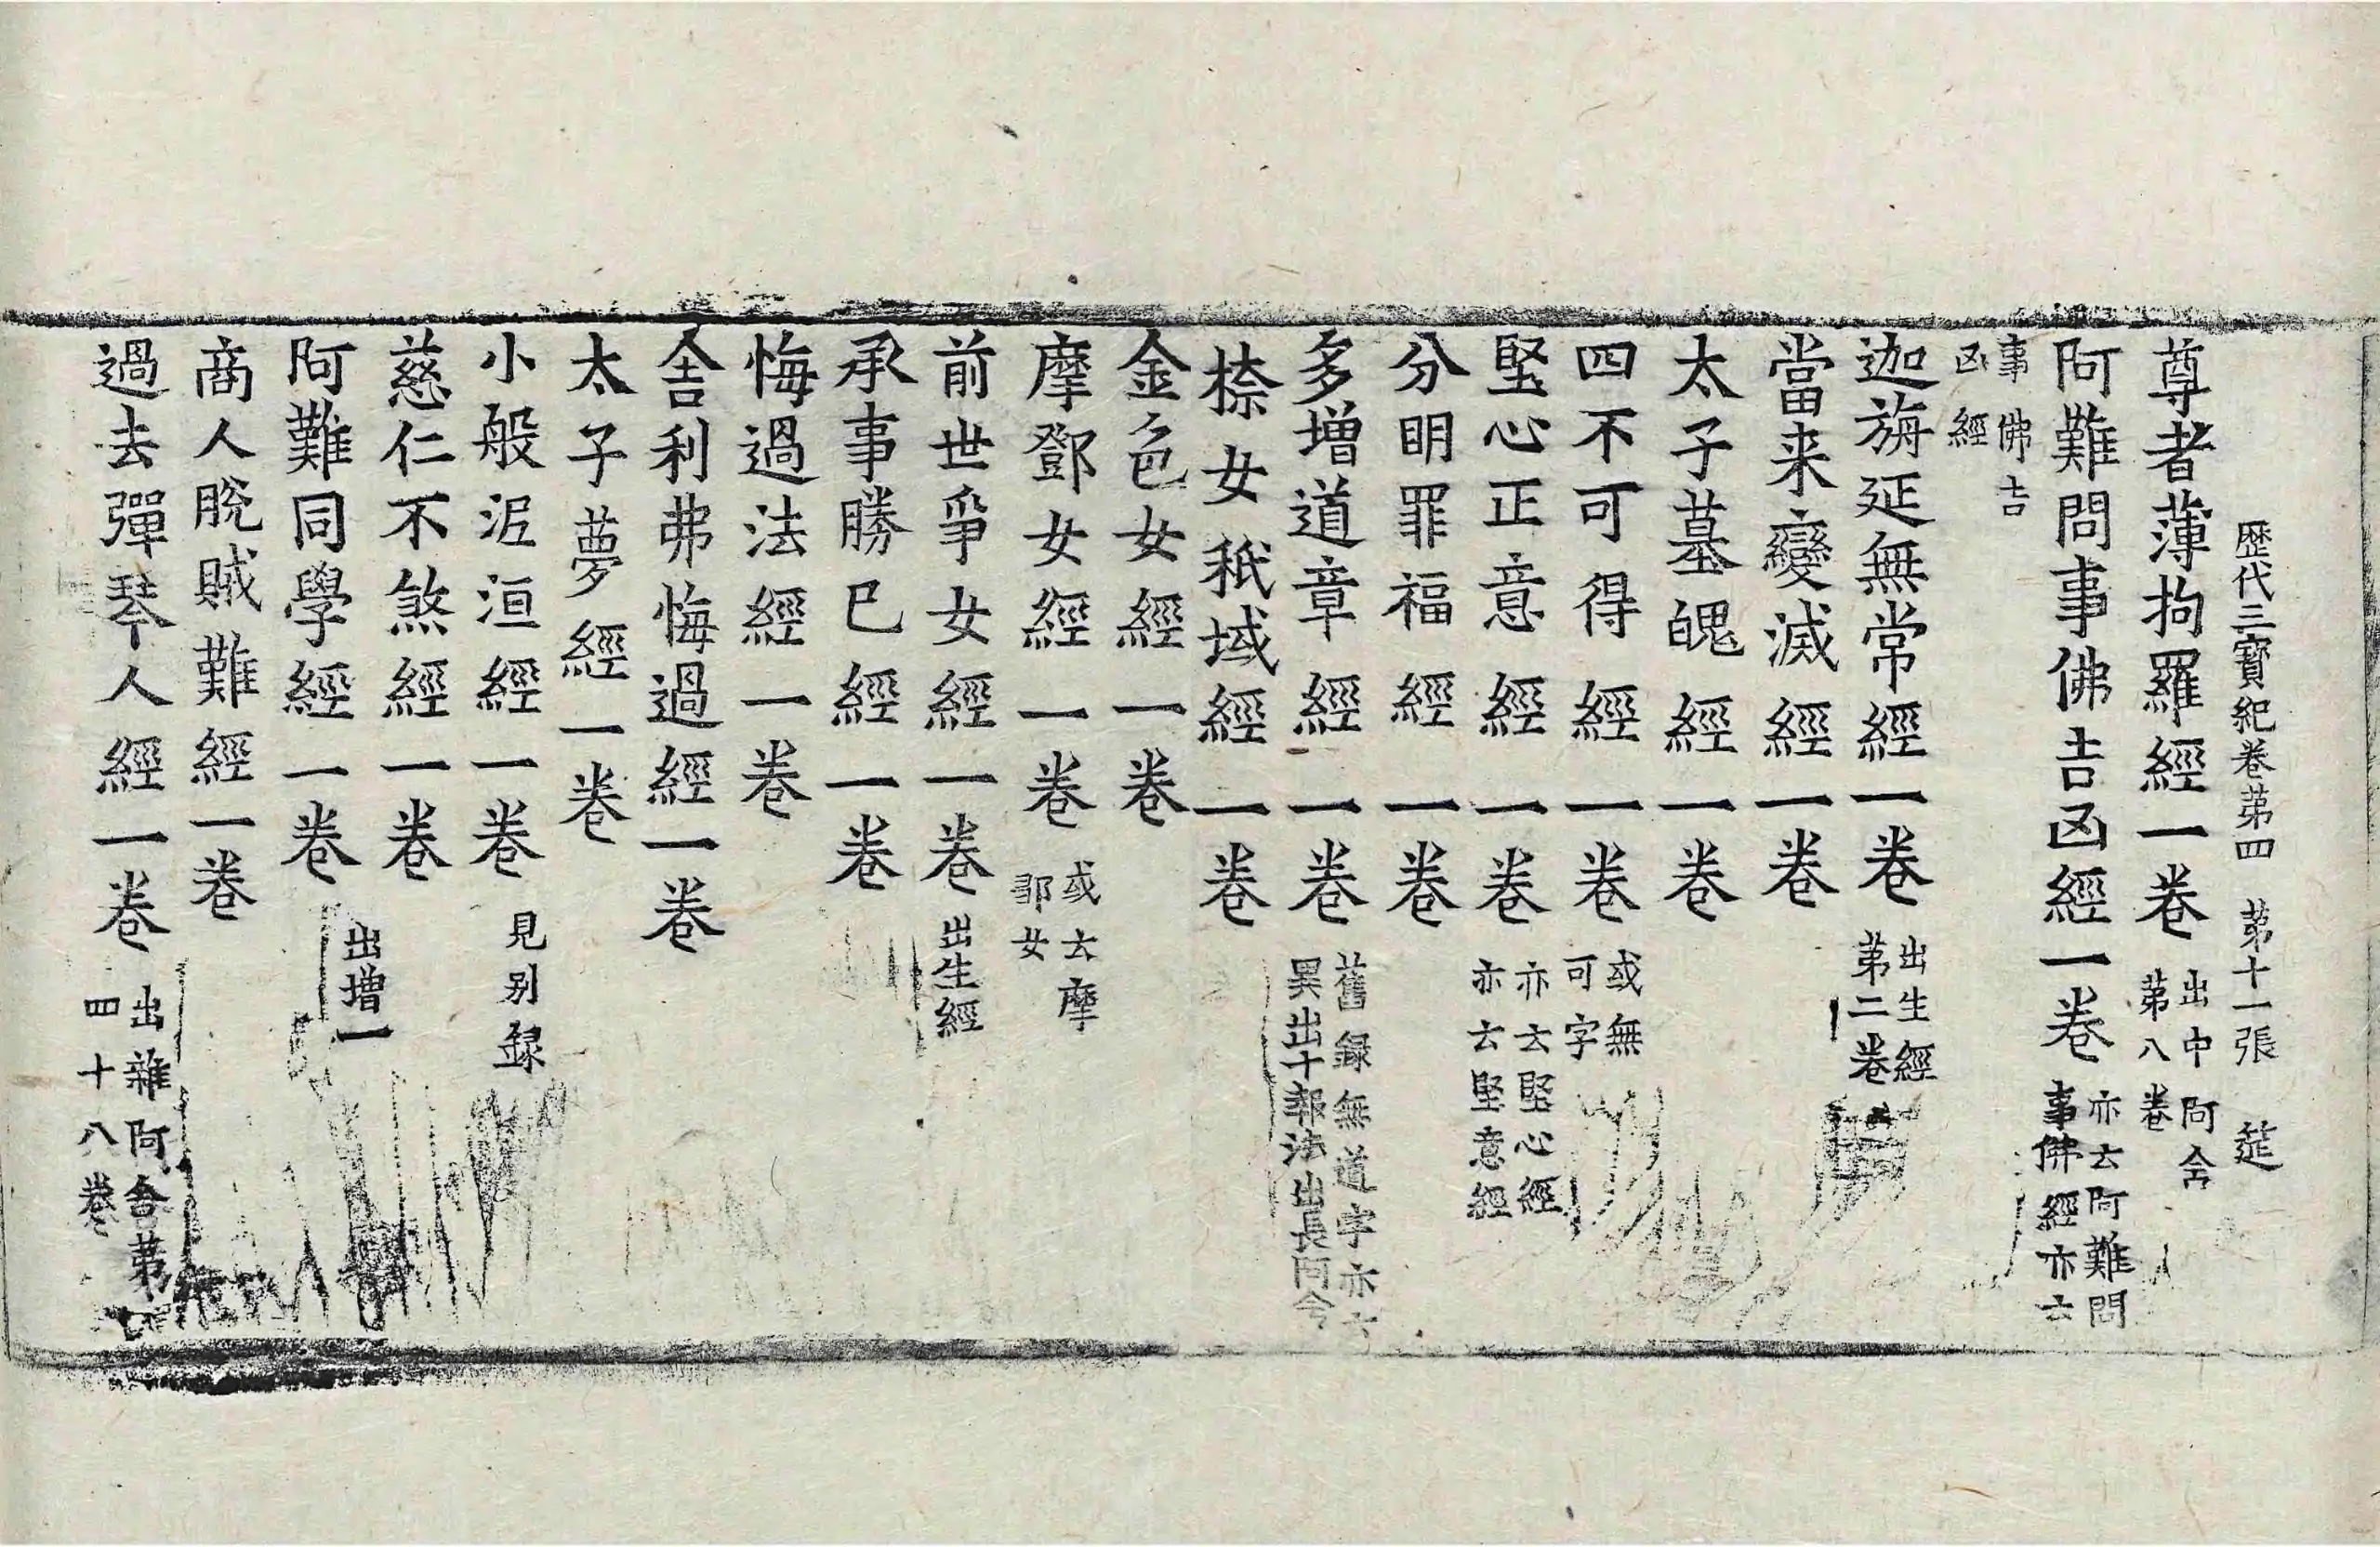 歷代三寶紀卷苐四 苐十一張 莚
尊者薄拘羅經一卷 出中阿含苐八卷
阿難問事佛吉凶經一卷 亦云阿難問事佛經亦云
事佛吉凶經
迦旃延無常經一卷 出生經苐二卷
當来變滅經一卷
太子墓魄經一卷
四不可得經一卷 或無可字
堅心正意經一卷 亦云堅心經亦云堅意經
分明罪福經一卷
多增道章經一卷 舊録無道字亦云異出十報法出長阿含
㮈女秖域經一卷
金色女經一卷
摩鄧女經一卷 或云摩鄒女
前世爭女經一卷 出生經
承事勝巳經一卷
悔過法經一卷
舍利弗悔過經一卷
太子夢經一卷
小般泥洹經一卷 見别録
慈仁不煞經一卷
阿難同學經一卷 出增一
商人脫賊難經一卷
過去彈琴人經一卷 出雜阿含苐四十八卷